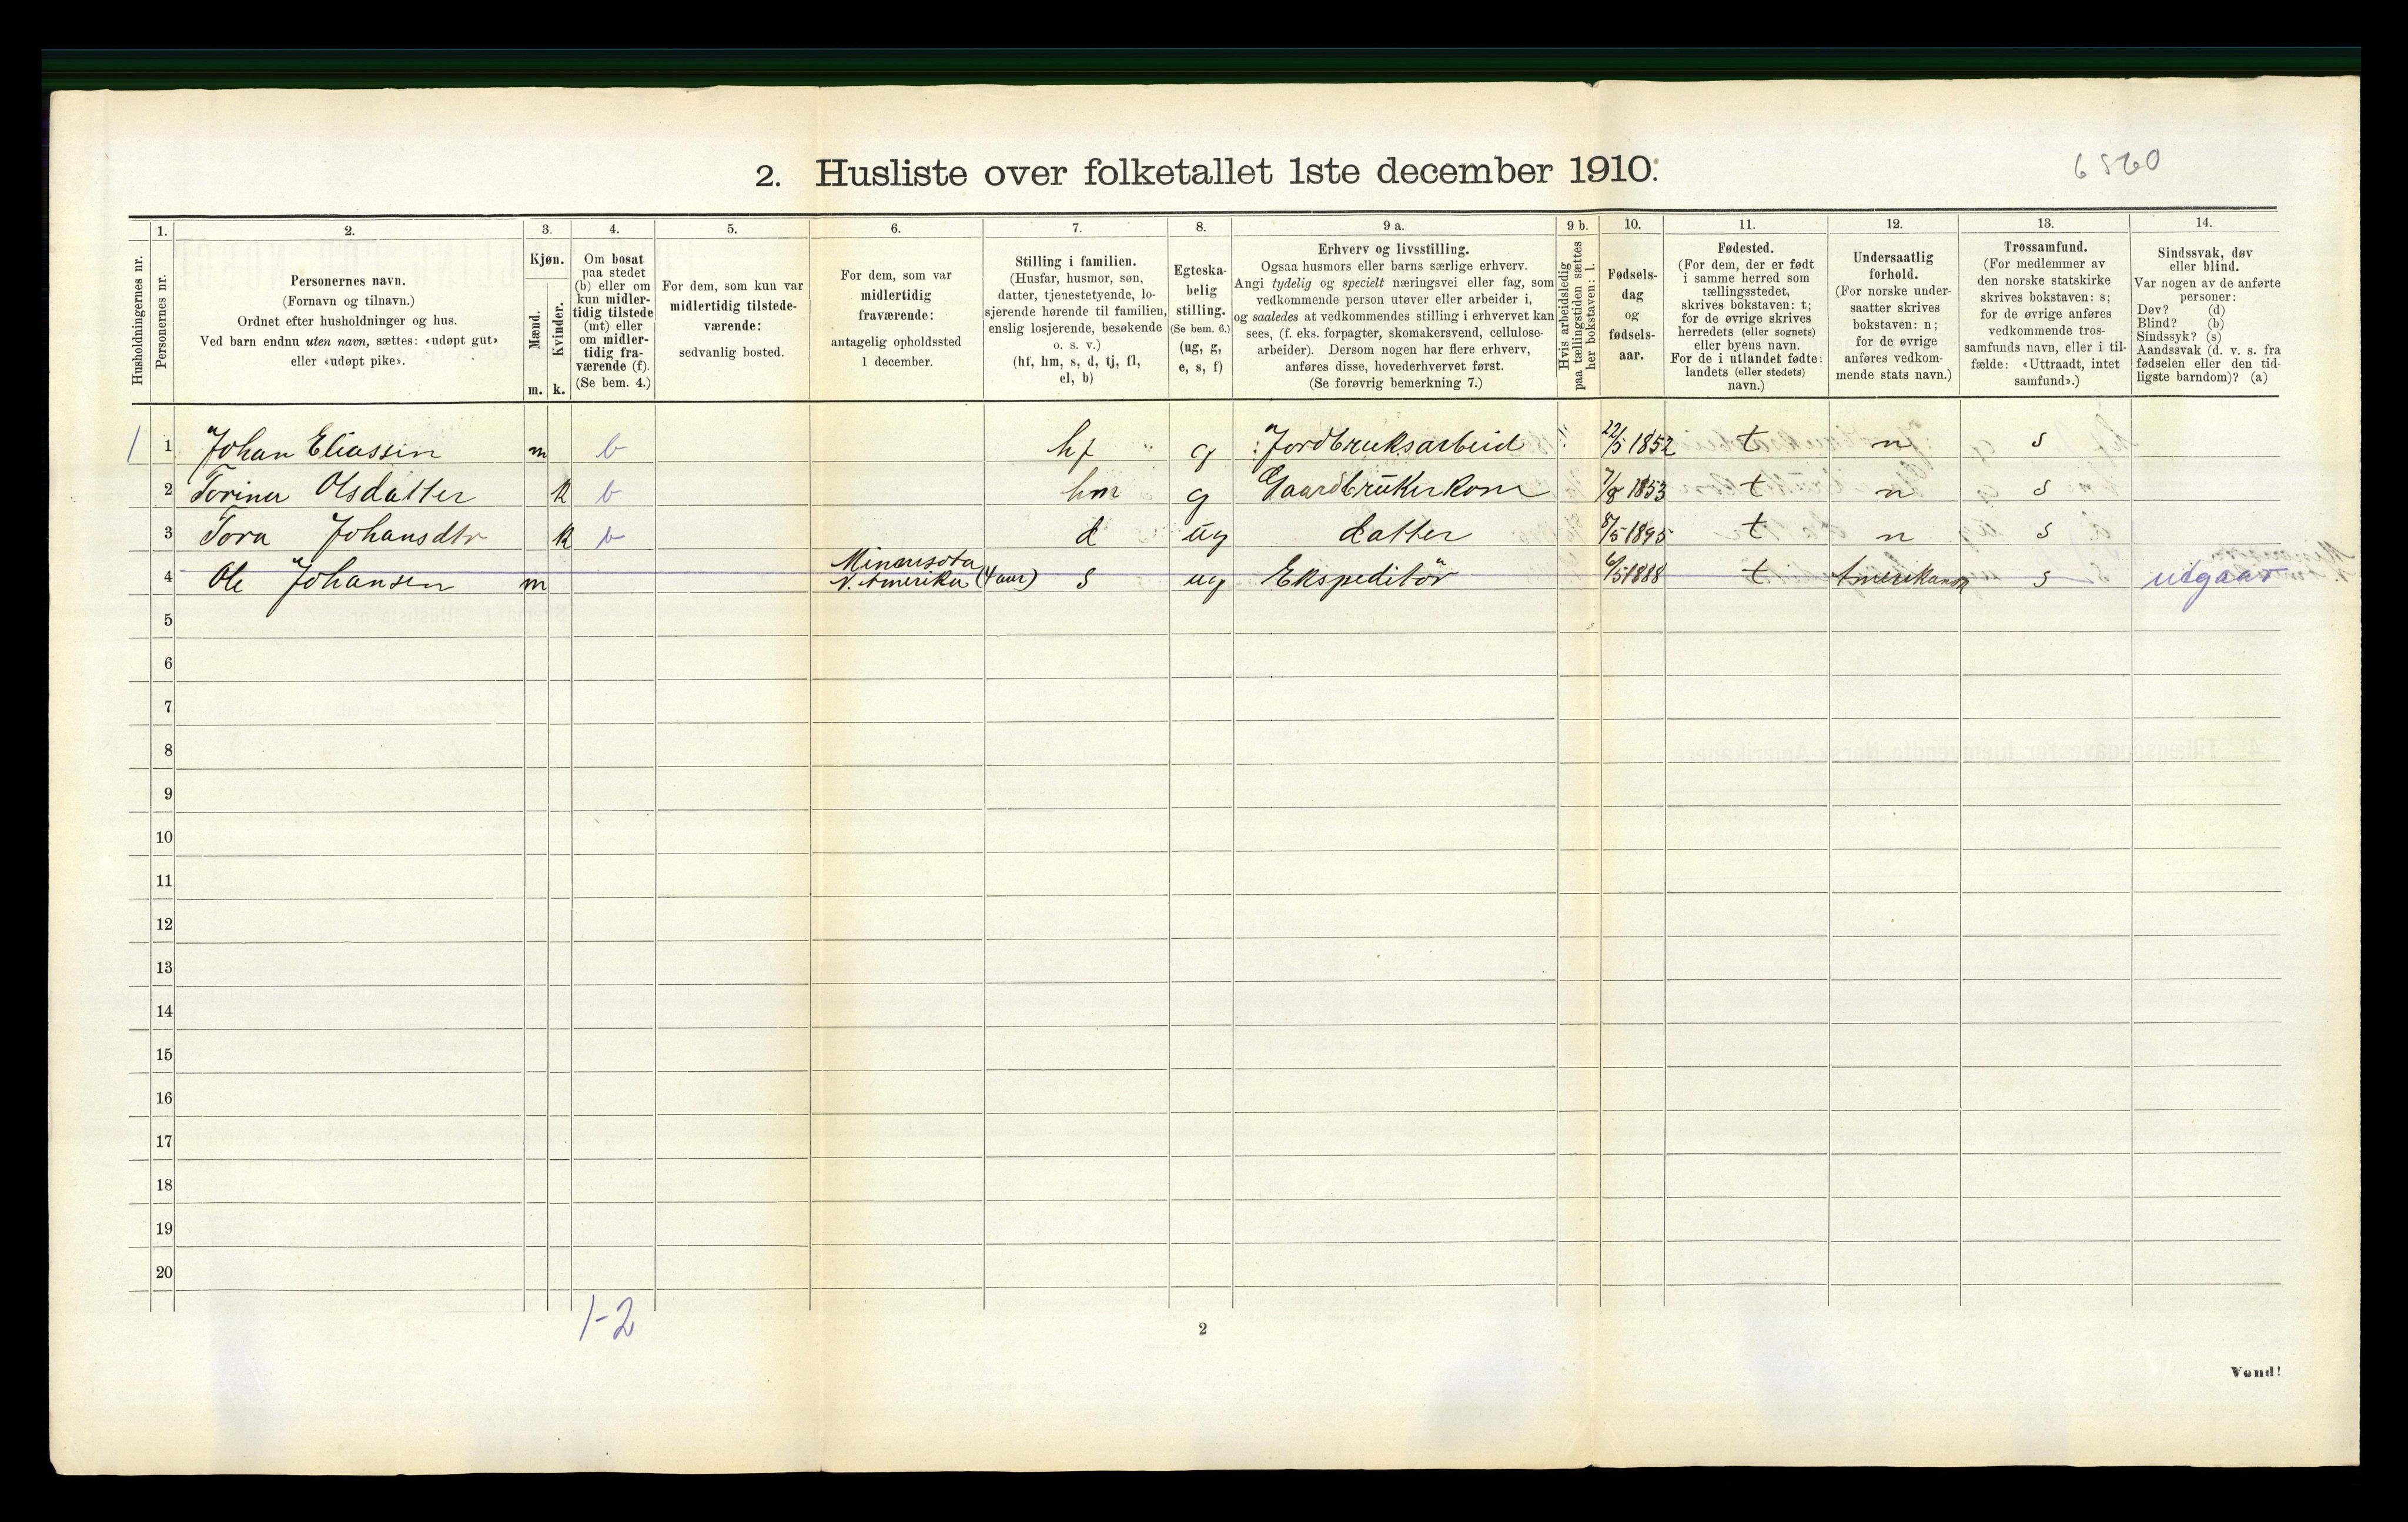 2. Husliste over folketallet 1ste december 1910.
6560
Husholdningernes nr.
1.
Personernes nr.
2.
Personernes navn.
(Fornavn og tilnavn.)
Ordnet efter husholdninger og hus.
Ved barn endnu uten navn, sættes: «udøpt gut»
eller «udøpt pike».
3.
Kjøn.
Mænd.
m.
Kvinder.
k.
4.
Om bosat
paa stedet
(b) eller om
kun midler-
tidig tilstede
(mt) eller
om midler-
tidig fra-
værende (f).
(Se bem. 4.)
5.
For dem, som kun var
midlertidig tilstede-
værende:
sedvanlig bosted.
6.
For dem, som var
midlertidig
fraværende:
antagelig opholdssted
1 december.
7.
Stilling i familien.
(Husfar, husmor, søn,
datter, tjenestetyende, lo-
sjerende hørende til familien,
enslig losjerende, besøkende
o. s. v.)
(hf, hm, s, d, tj, fl,
el, b)
8.
Egteska-
belig
stilling.
(Se bem. 6.)
(ug, g,
e, s, f)
9 a.
Erhverv og livsstilling.
Ogsaa husmors eller barns særlige erhverv.
Angi tydelig og specielt næringsvei eller fag, som
vedkommende person utøver eller arbeider i,
og saaledes at vedkommendes stilling i erhvervet kan
sees, (f. eks. forpagter, skomakersvend, cellulose-
arbeider). Dersom nogen har flere erhverv,
anføres disse, hovederhvervet først.
(Se forøvrig bemerkning 7.)
9 b.
Hvis arbeidsledig
paa tællingstiden sættes
her bokstaven: l.
10.
Fødsels-
dag
og
fødsels-
aar.
11.
Fødested.
(For dem, der er født
i samme herred som
tællingsstedet,
skrives bokstaven: t;
for de øvrige skrives
herredets (eller sognets)
eller byens navn.
For de i utlandet fødte:
landets (eller stedets)
navn.)
12.
Undersaatlig
forhold.
(For norske under-
saatter skrives
bokstaven: n;
for de øvrige
anføres vedkom-
mende stats navn.)
13.
Trossamfund.
(For medlemmer av
den norske statskirke
skrives bokstaven: s;
for de øvrige anføres
vedkommende tros-
samfunds navn, eller i til-
fælde: «Uttraadt, intet
samfund».)
14.
Sindssvak, døv
eller blind.
Var nogen av de anførte
personer:
Døv? (d)
Blind? (b)
Sindssyk? (s)
Aandssvak (d. v. s. fra
fødselen eller den tid-
ligste barndom)? (a)
1 1 Johan Eliassen m b hf g Jordbruksarbeid 22/5 1852 t n s
2 Torine Olsdatter k b hm g Gaardbrukerkone 7/8 1853 t n s
3 Tora Johansdtr k b d ug datter 8/5 1895 t n s
4 Ole Johansen m Minnesota N. Amerika (4 aar) s ug Ekspeditör 6/5 1888 t Amerikansk s utgaar
5
6
7
8
9
10
11
12
13
14
15
16
17
18
19
20
1-2
2
Vend!